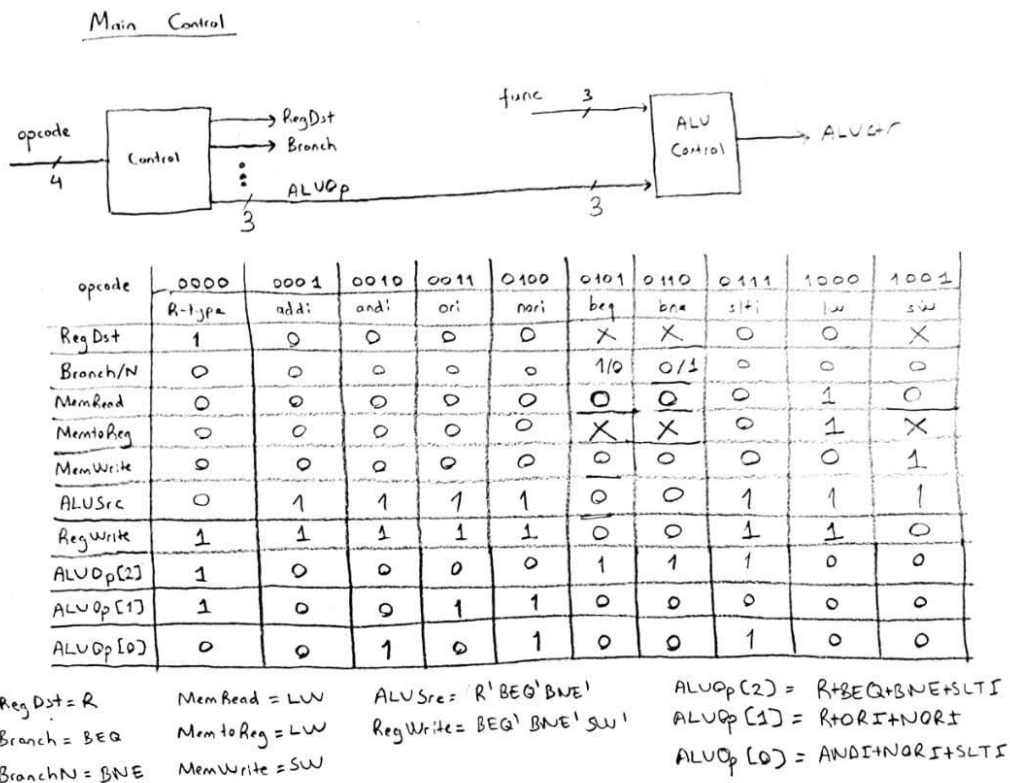 Main Control
opcode
4
Control
RegDst
Branch
ALUOp
3
func 3
3
ALU
Control
ALUCtr
opcode 0000 0001 0010 0011 0100 0101 0110 0111 1000 1001
R-type addi andi ori nori beq bne slti lw sw
RegDst 1 0 0 0 0 X X 0 0 X
Branch/N 0 0 0 0 0 1/0 0/1 0 0 0
MemRead 0 0 0 0 0 0 0 0 1 0
MemtoReg 0 0 0 0 0 X X 0 1 X
MemWrite 0 0 0 0 0 0 0 0 0 1
ALUSrc 0 1 1 1 1 0 0 1 1 1
RegWrite 1 1 1 1 1 0 0 1 1 0
ALUOp[2] 1 0 0 0 0 1 1 1 0 0
ALUOp[1] 1 0 0 1 1 0 0 0 0 0
ALUOp[0] 0 0 1 0 1 0 0 1 0 0
RegDst = R MemRead = LW ALUSrc = R' BEQ' BNE' ALUOp[2] = R+BEQ+BNE+SLTI
Branch = BEQ MemtoReg = LW RegWrite = BEQ' BNE' SW' ALUOp[1] = R+ORI+NORI
BranchN = BNE MemWrite = SW ALUOp[0] = ANDI+NORI+SLTI